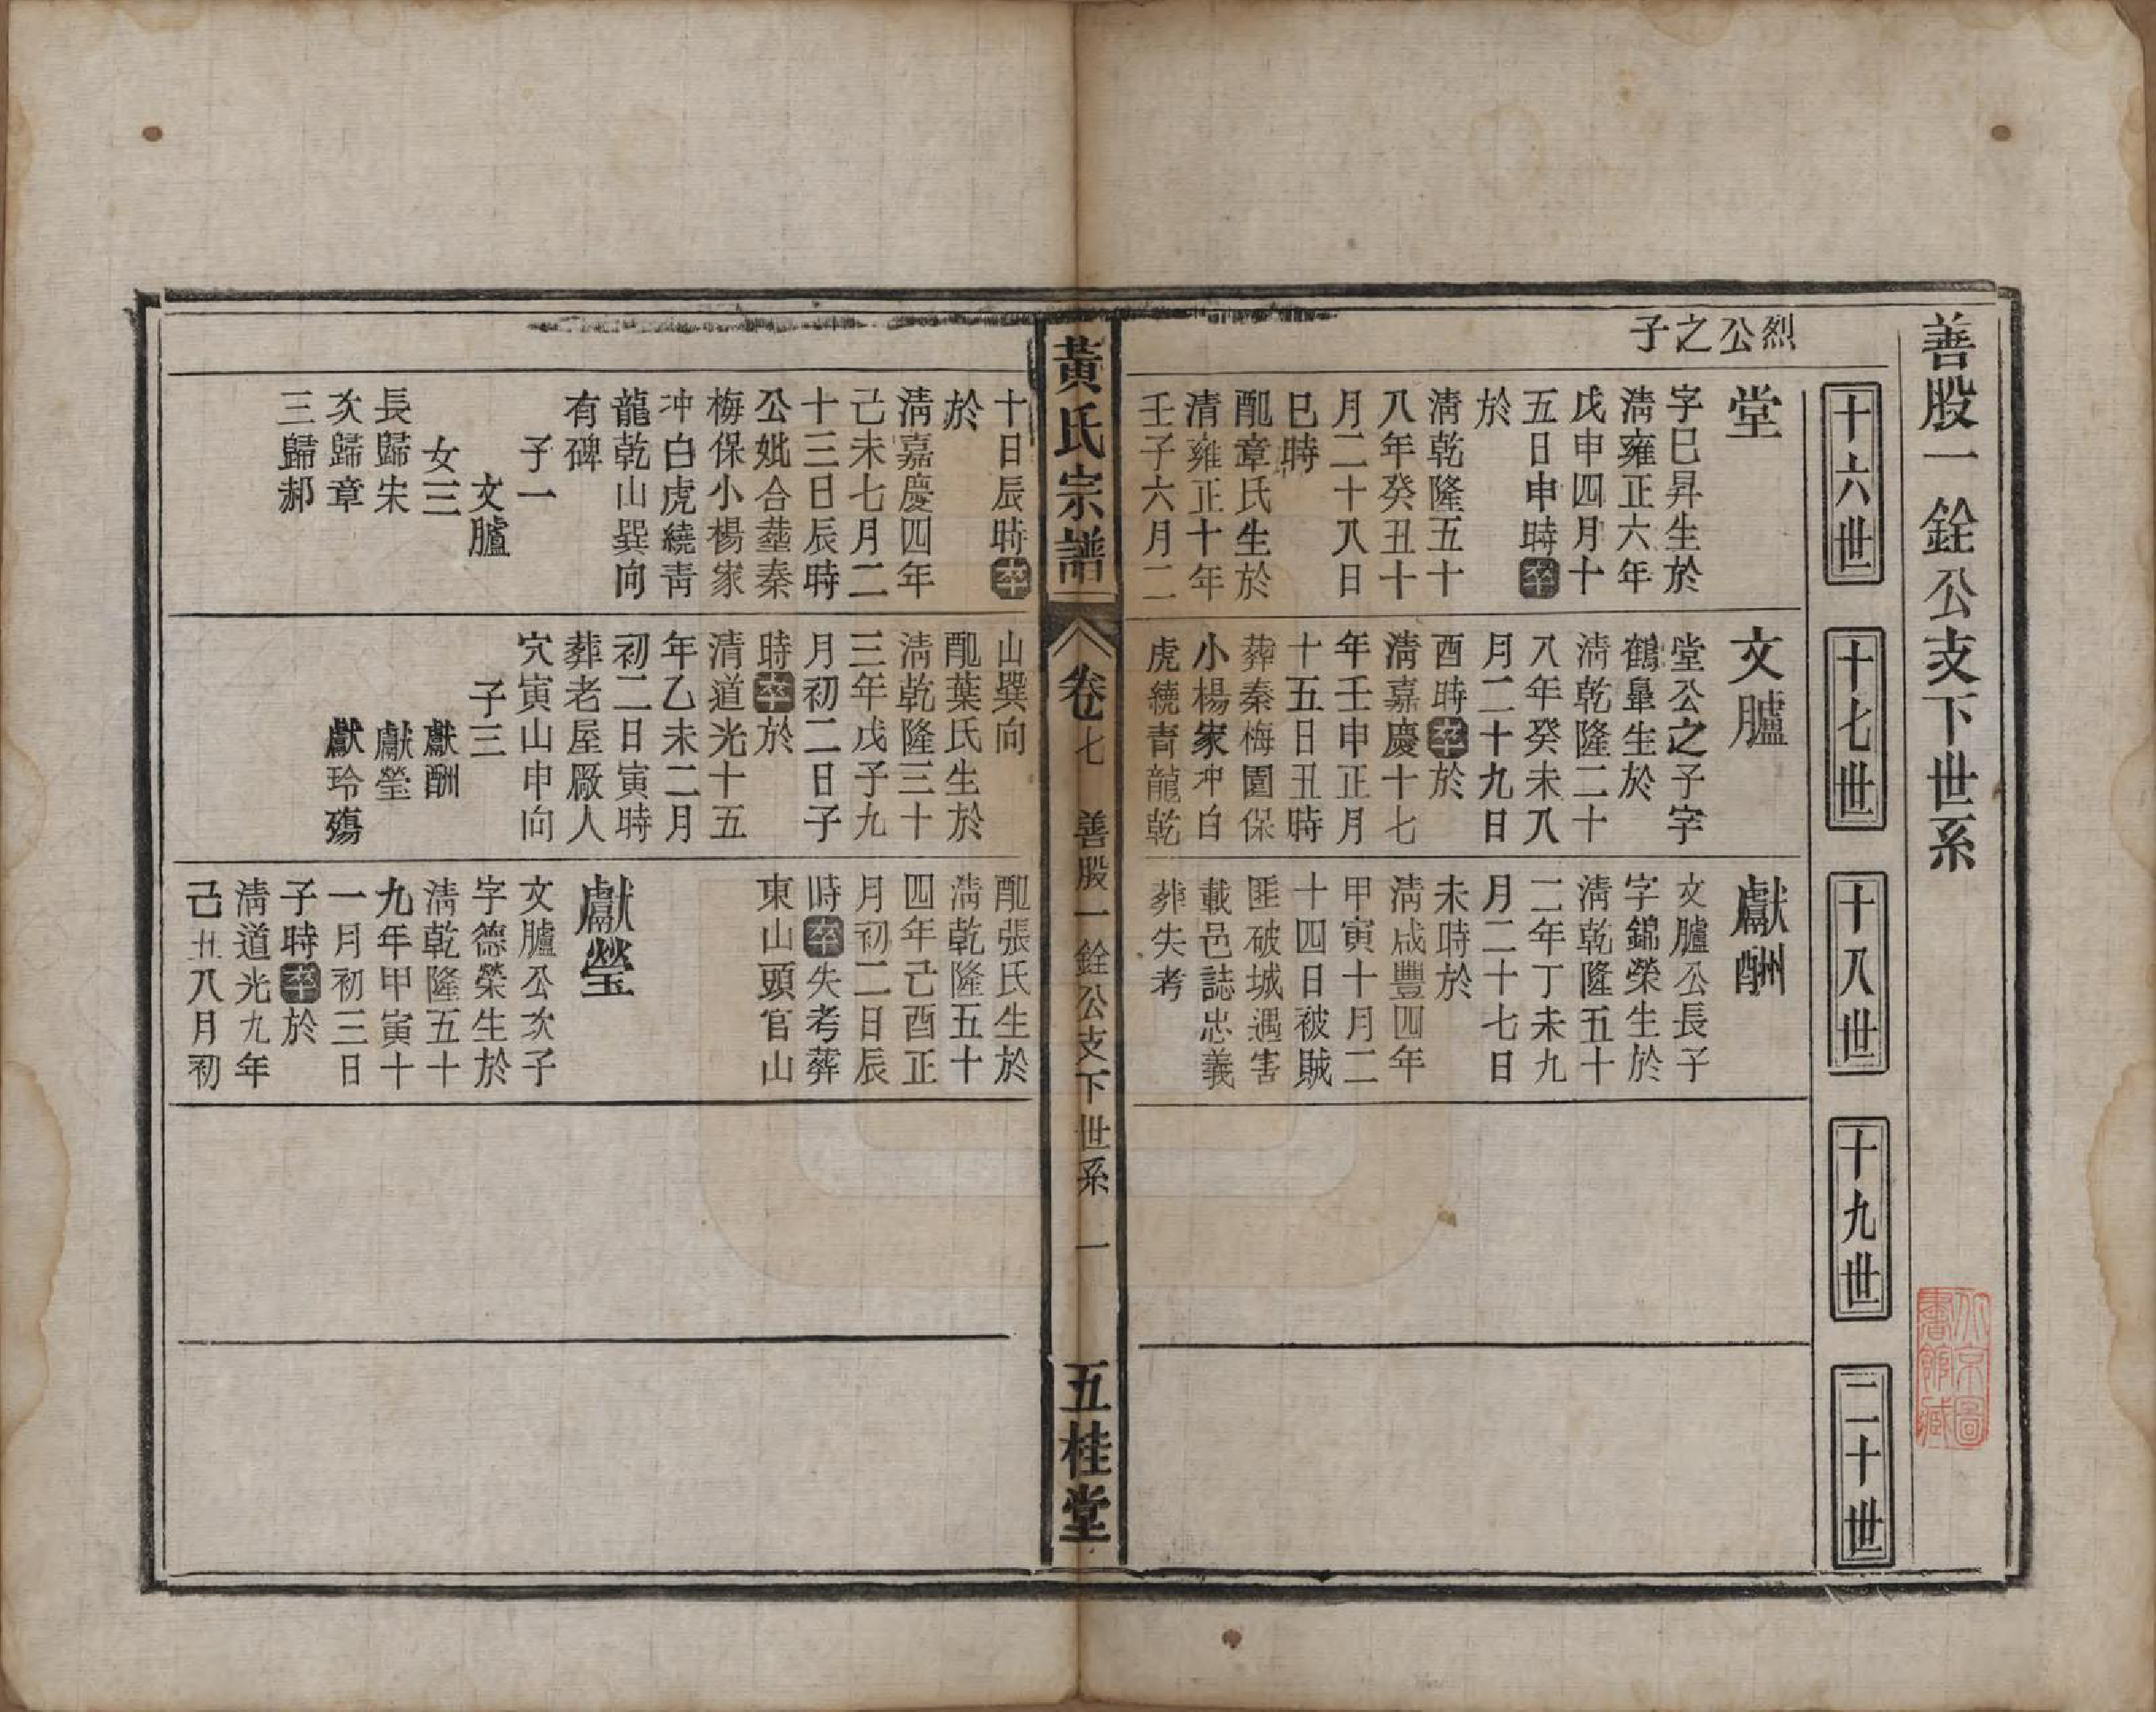 善股一銓公支下世系
十六世
十七世
十八世
十九世
二十世
烈公之子
堂
字巳昇生於
淸雍正六年
戊申四月十
五日申時卒
於
淸乾隆五十
八年癸丑十
月二十八日
巳時
配章氏生於
清雍正十年
壬子六月二
文臚
堂公之子字
鶴臯生於
淸乾隆二十
八年癸未八
月二十九日
酉時卒於
淸嘉慶十七
年壬申正月
十五日丑時
葬秦梅園保
小楊家冲白
虎繞靑龍乾
獻酬
文臚公長子
字錦榮生於
淸乾隆五十
二年丁未九
月二十七日
未時於
淸咸豐四年
甲寅十月二
十四日被賊
匪破城遇害
載邑誌忠義
葬失考
黃氏宗譜
卷七
善股一銓公支下世系
一
五桂堂
十日辰時卒
於
淸嘉慶四年
己未七月二
十三日辰時
公妣合塟秦
梅保小楊家
冲白虎繞靑
龍乾山巽向
有碑
子一
文臚
女三
長歸宋
次歸章
三歸郝
山巽向
配葉氏生於
淸乾隆三十
三年戊子九
月初二日子
時卒於
清道光十五
年乙未二月
初二日寅時
葬老屋厰人
穴寅山申向
子三
獻酬
獻瑩
獻玲殤
配張氏生於
淸乾隆五十
四年己酉正
月初二日辰
時卒失考葬
東山頭官山
獻瑩
文臚公次子
字德榮生於
淸乾隆五十
九年甲寅十
一月初三日
子時卒於
淸道光九年
己丑八月初
北京圖
書館藏